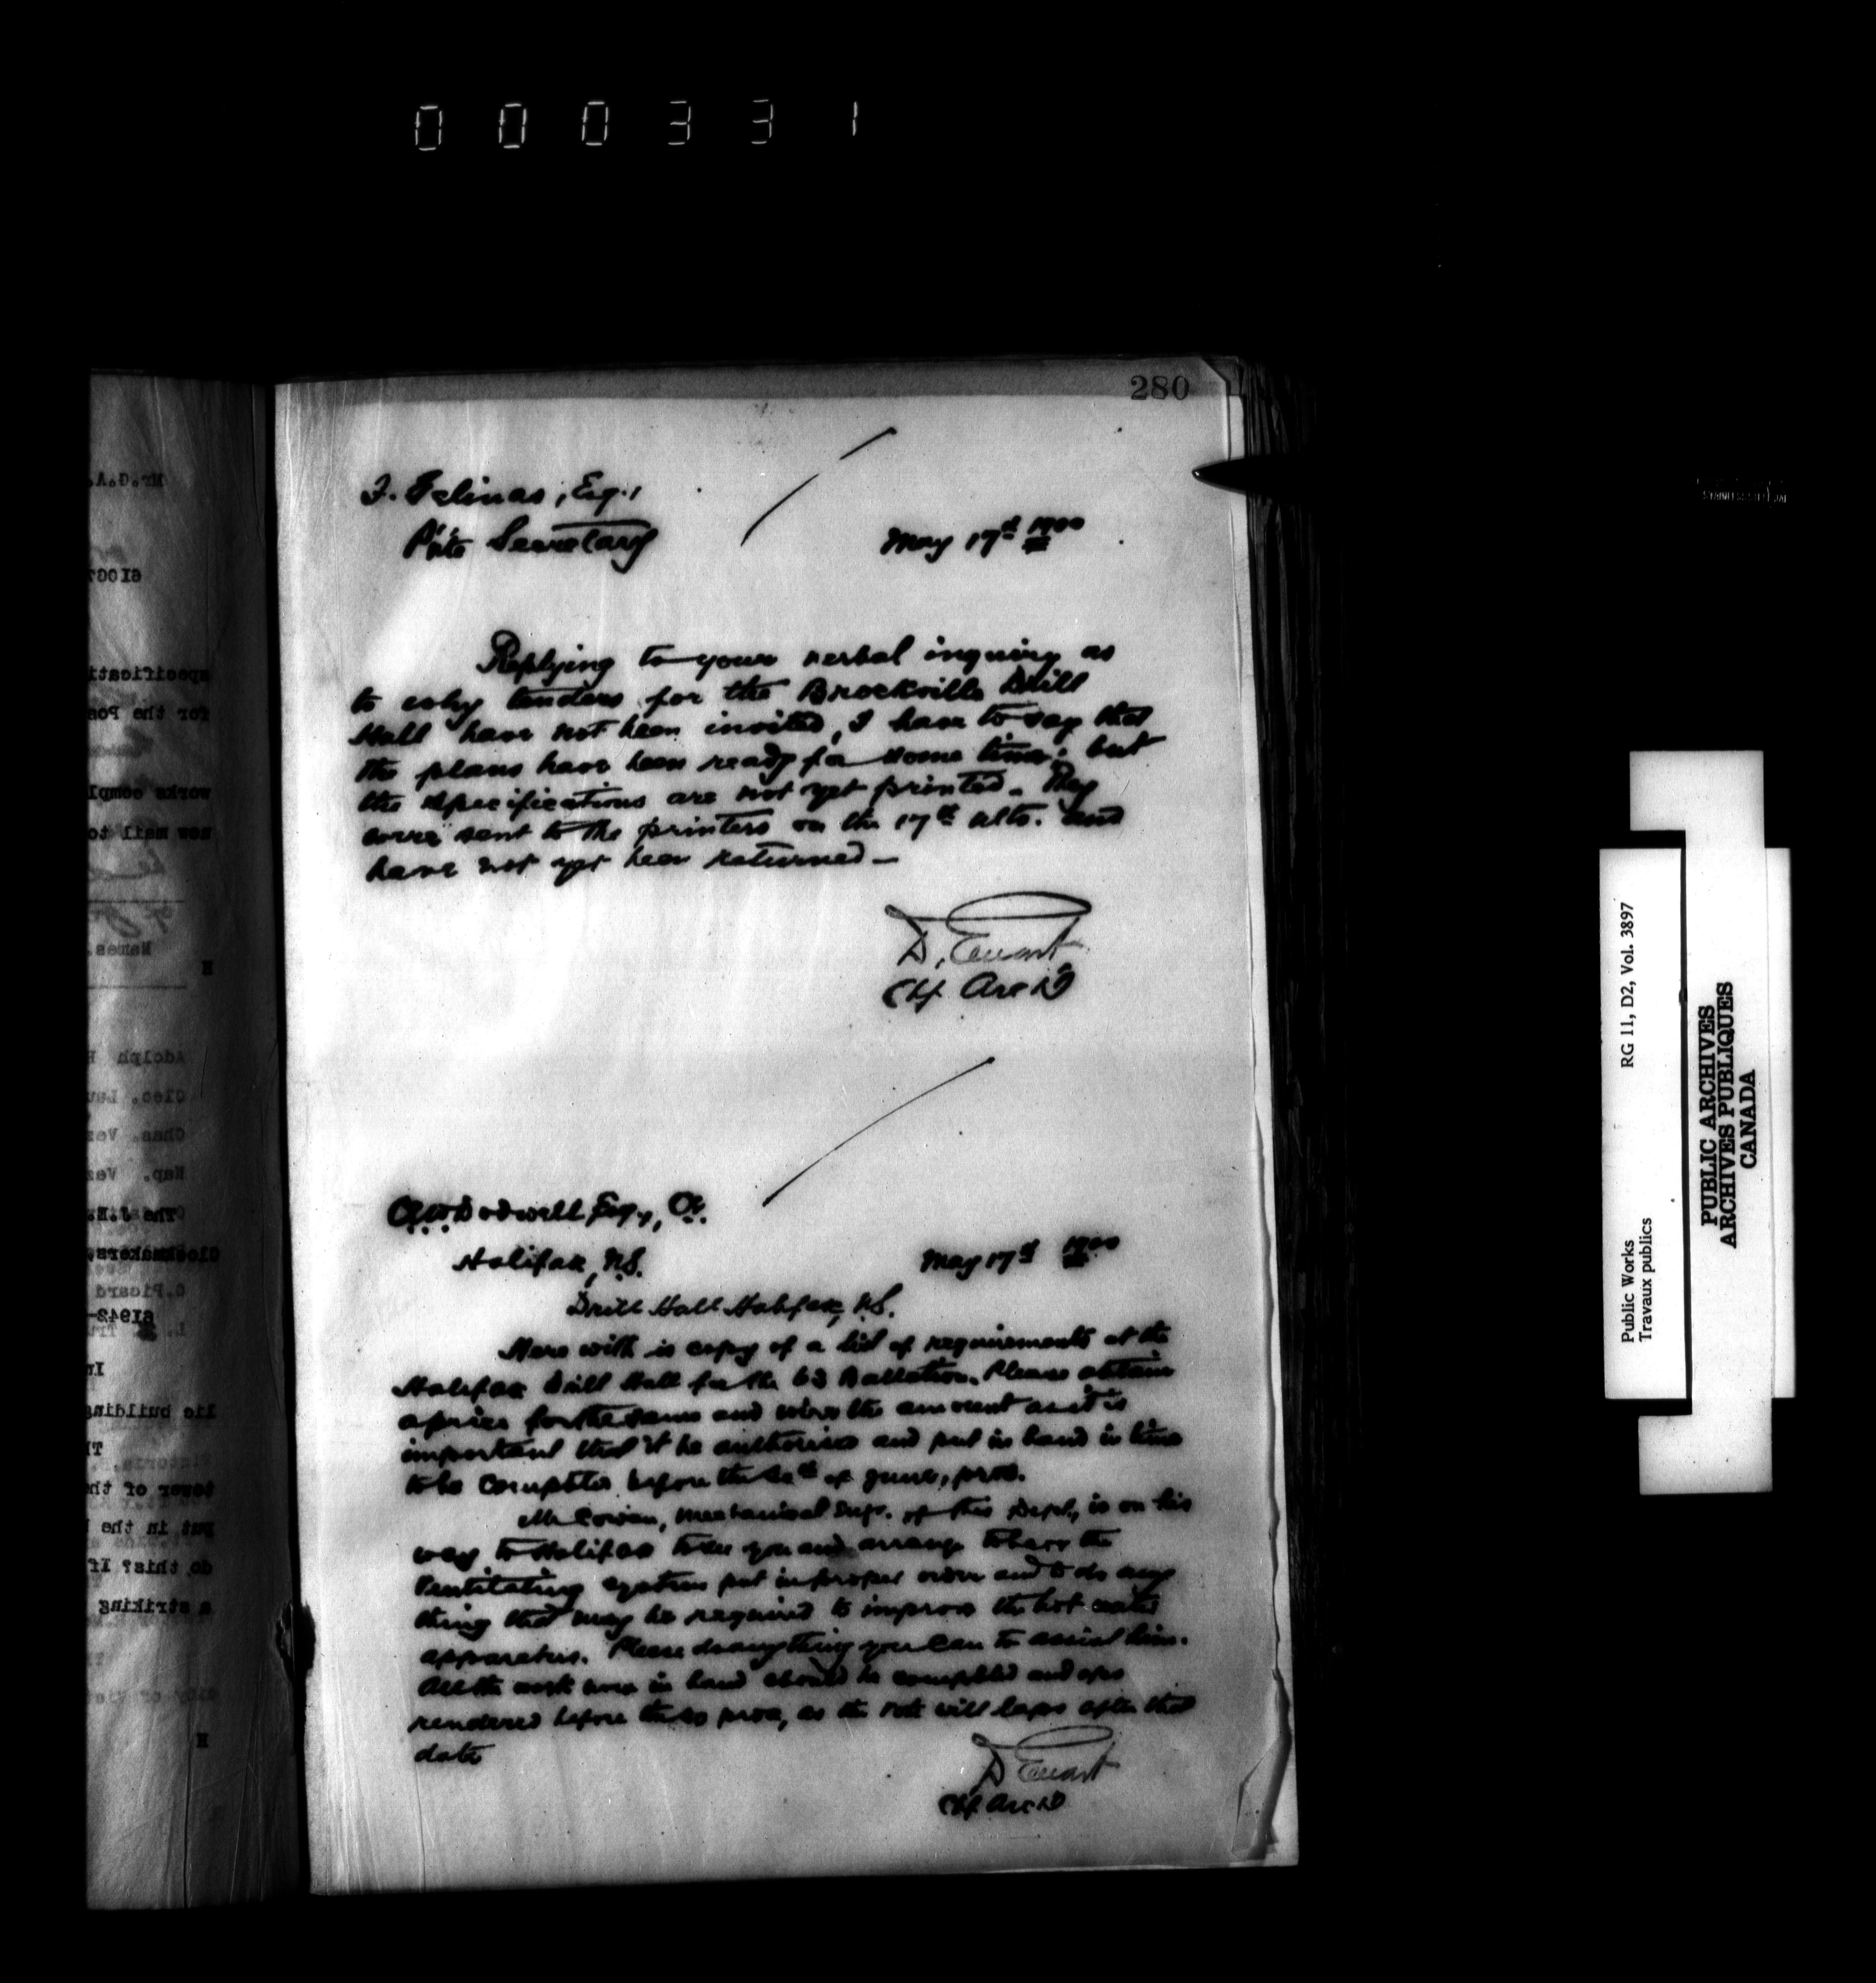 000331
280
F. Gelinas, Esq.,
P'ate Secretary
May 17th 1900
Replying to your verbal inquiry as
to why tenders for the Brockville Drill
Hall have not been invited, I have to say that
the plans have been ready for some time; but
the specifications are not yet printed. They
were sent to the printers on the 17th ulto. and
have not yet been returned —
D. Ewart
Chf. Arch't
C.E.W. Dodwell Esq., CE.
Halifax, N.S.
May 17th 1900
Drill Hall Halifax, N.S.
Here with is copy of a list of requirements at the
Halifax Drill Hall for the 63 Battalion. Please obtain
a price for the same and wire the amount as it is
important that it be authorised and put in hand in time
to be completed before the 30th of June, prox.
Mr Cowan, Mechanical Engr. of this Dept., is on his
way to Halifax to see you and arrange to have the
Ventilating system put in proper order and to do any
thing that may be required to improve the hot water
apparatus. Please do anything you can to assist him.
All the work now in hand should be completed and
rendered before the 30 prox, as the vote will laps after that
date
D Ewart
Chf. Arch't
Public Works
Travaux publics
RG 11, D2, Vol. 3897
PUBLIC ARCHIVES
ARCHIVES PUBLIQUES
CANADA